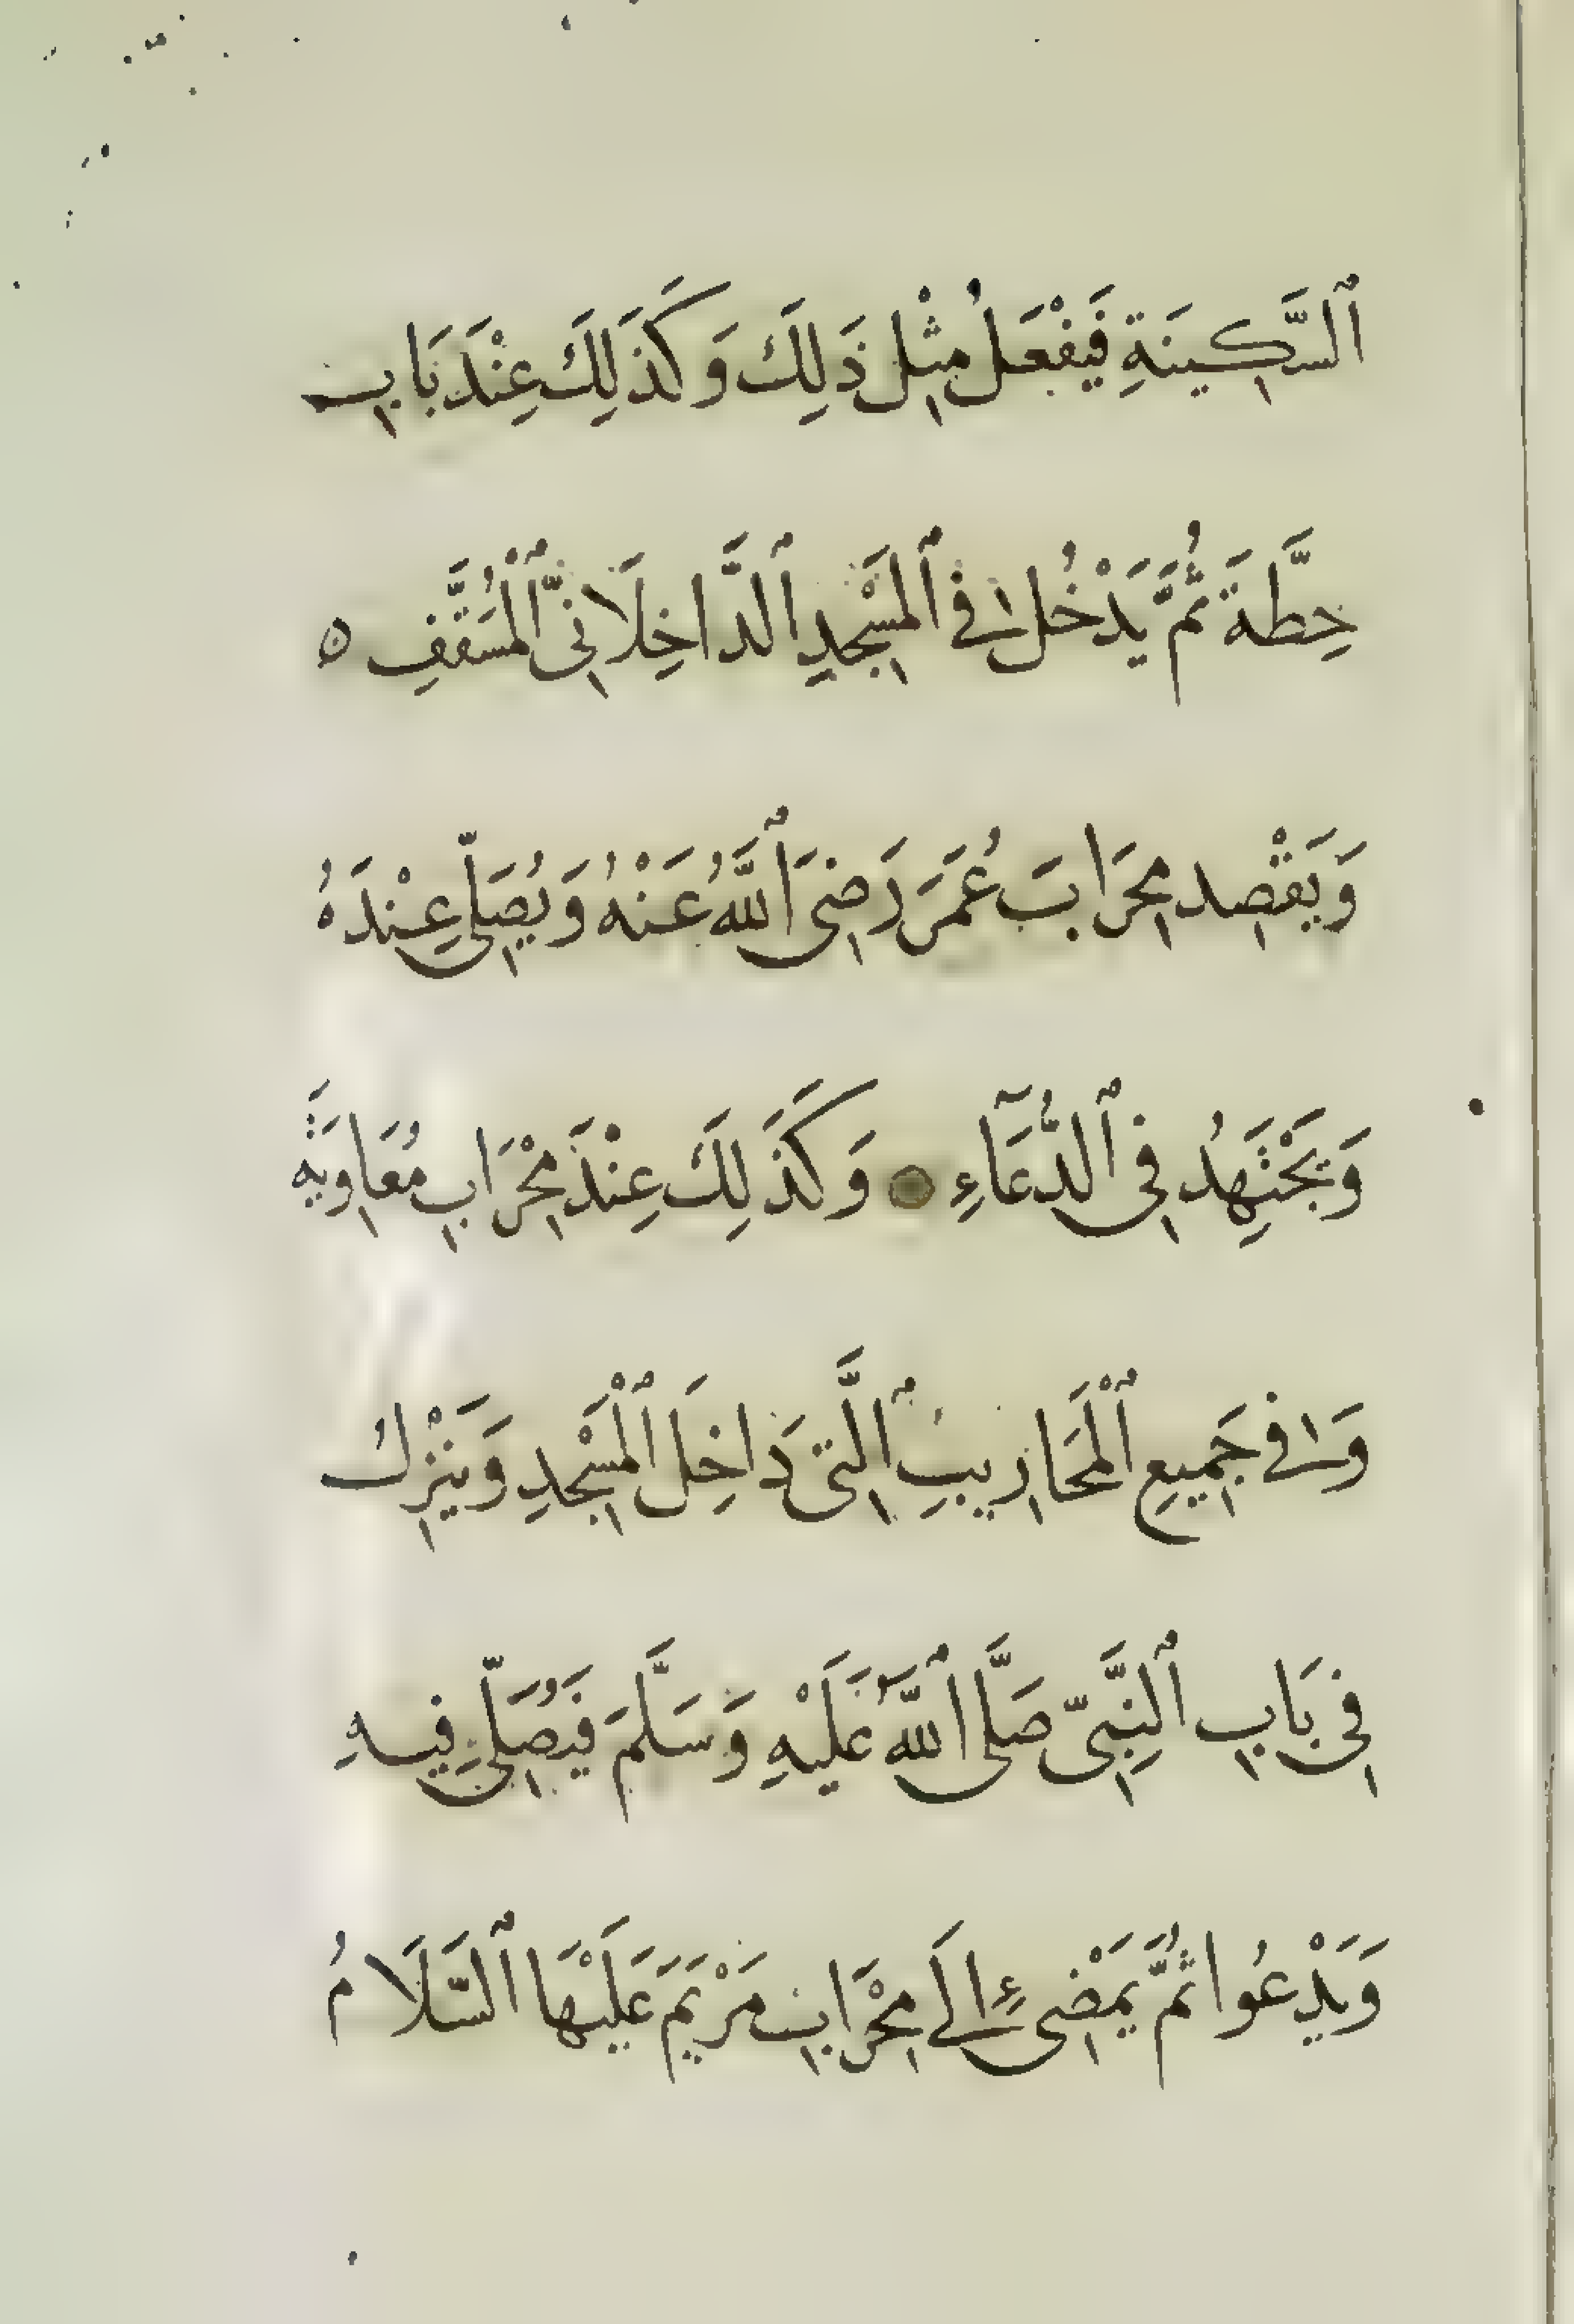 ٱلسَّكِينَةِ فَيَفْعَلُ مِثْلَ ذَلِكَ وَكَذَلِكَ عِنْدَ بَابِ
حِطَّةَ ثُمَّ يَدْخُلُ فِي ٱلْمَسْجِدِ ٱلدَّاخِلَانِيِّ ٱلْمُسَقَّفِ ه
وَيَقْصِد مِحْرَابَ عُمَرَ رَضِىَ ٱللَّهُ عَنْهُ وَيُصَلِّي عِنْدَهُ
وَيَجْتَهِدُ فِي ٱلدُّعَآءِ وَكَذَلِكَ عِنْدَ مِحْرَابِ مُعَاوِيَةَ
وَفِي جَمِيعِ ٱلْمَحَارِيبِ ٱلَّتِى دَاخِلَ ٱلْمَسْجِدِ وَيَنْزِلُ
فِي بَابِ ٱلنَّبِيِّ صَلَّى ٱللَّهُ عَلَيْهِ وَسَلَّمَ فَيُصَلِّي فِيهِ
وَيَدْعُوا ثُمَّ يَمْضِى إِلَى مِحْرَابِ مَرْيَمَ عَلَيْهَا ٱلسَّلَامُ